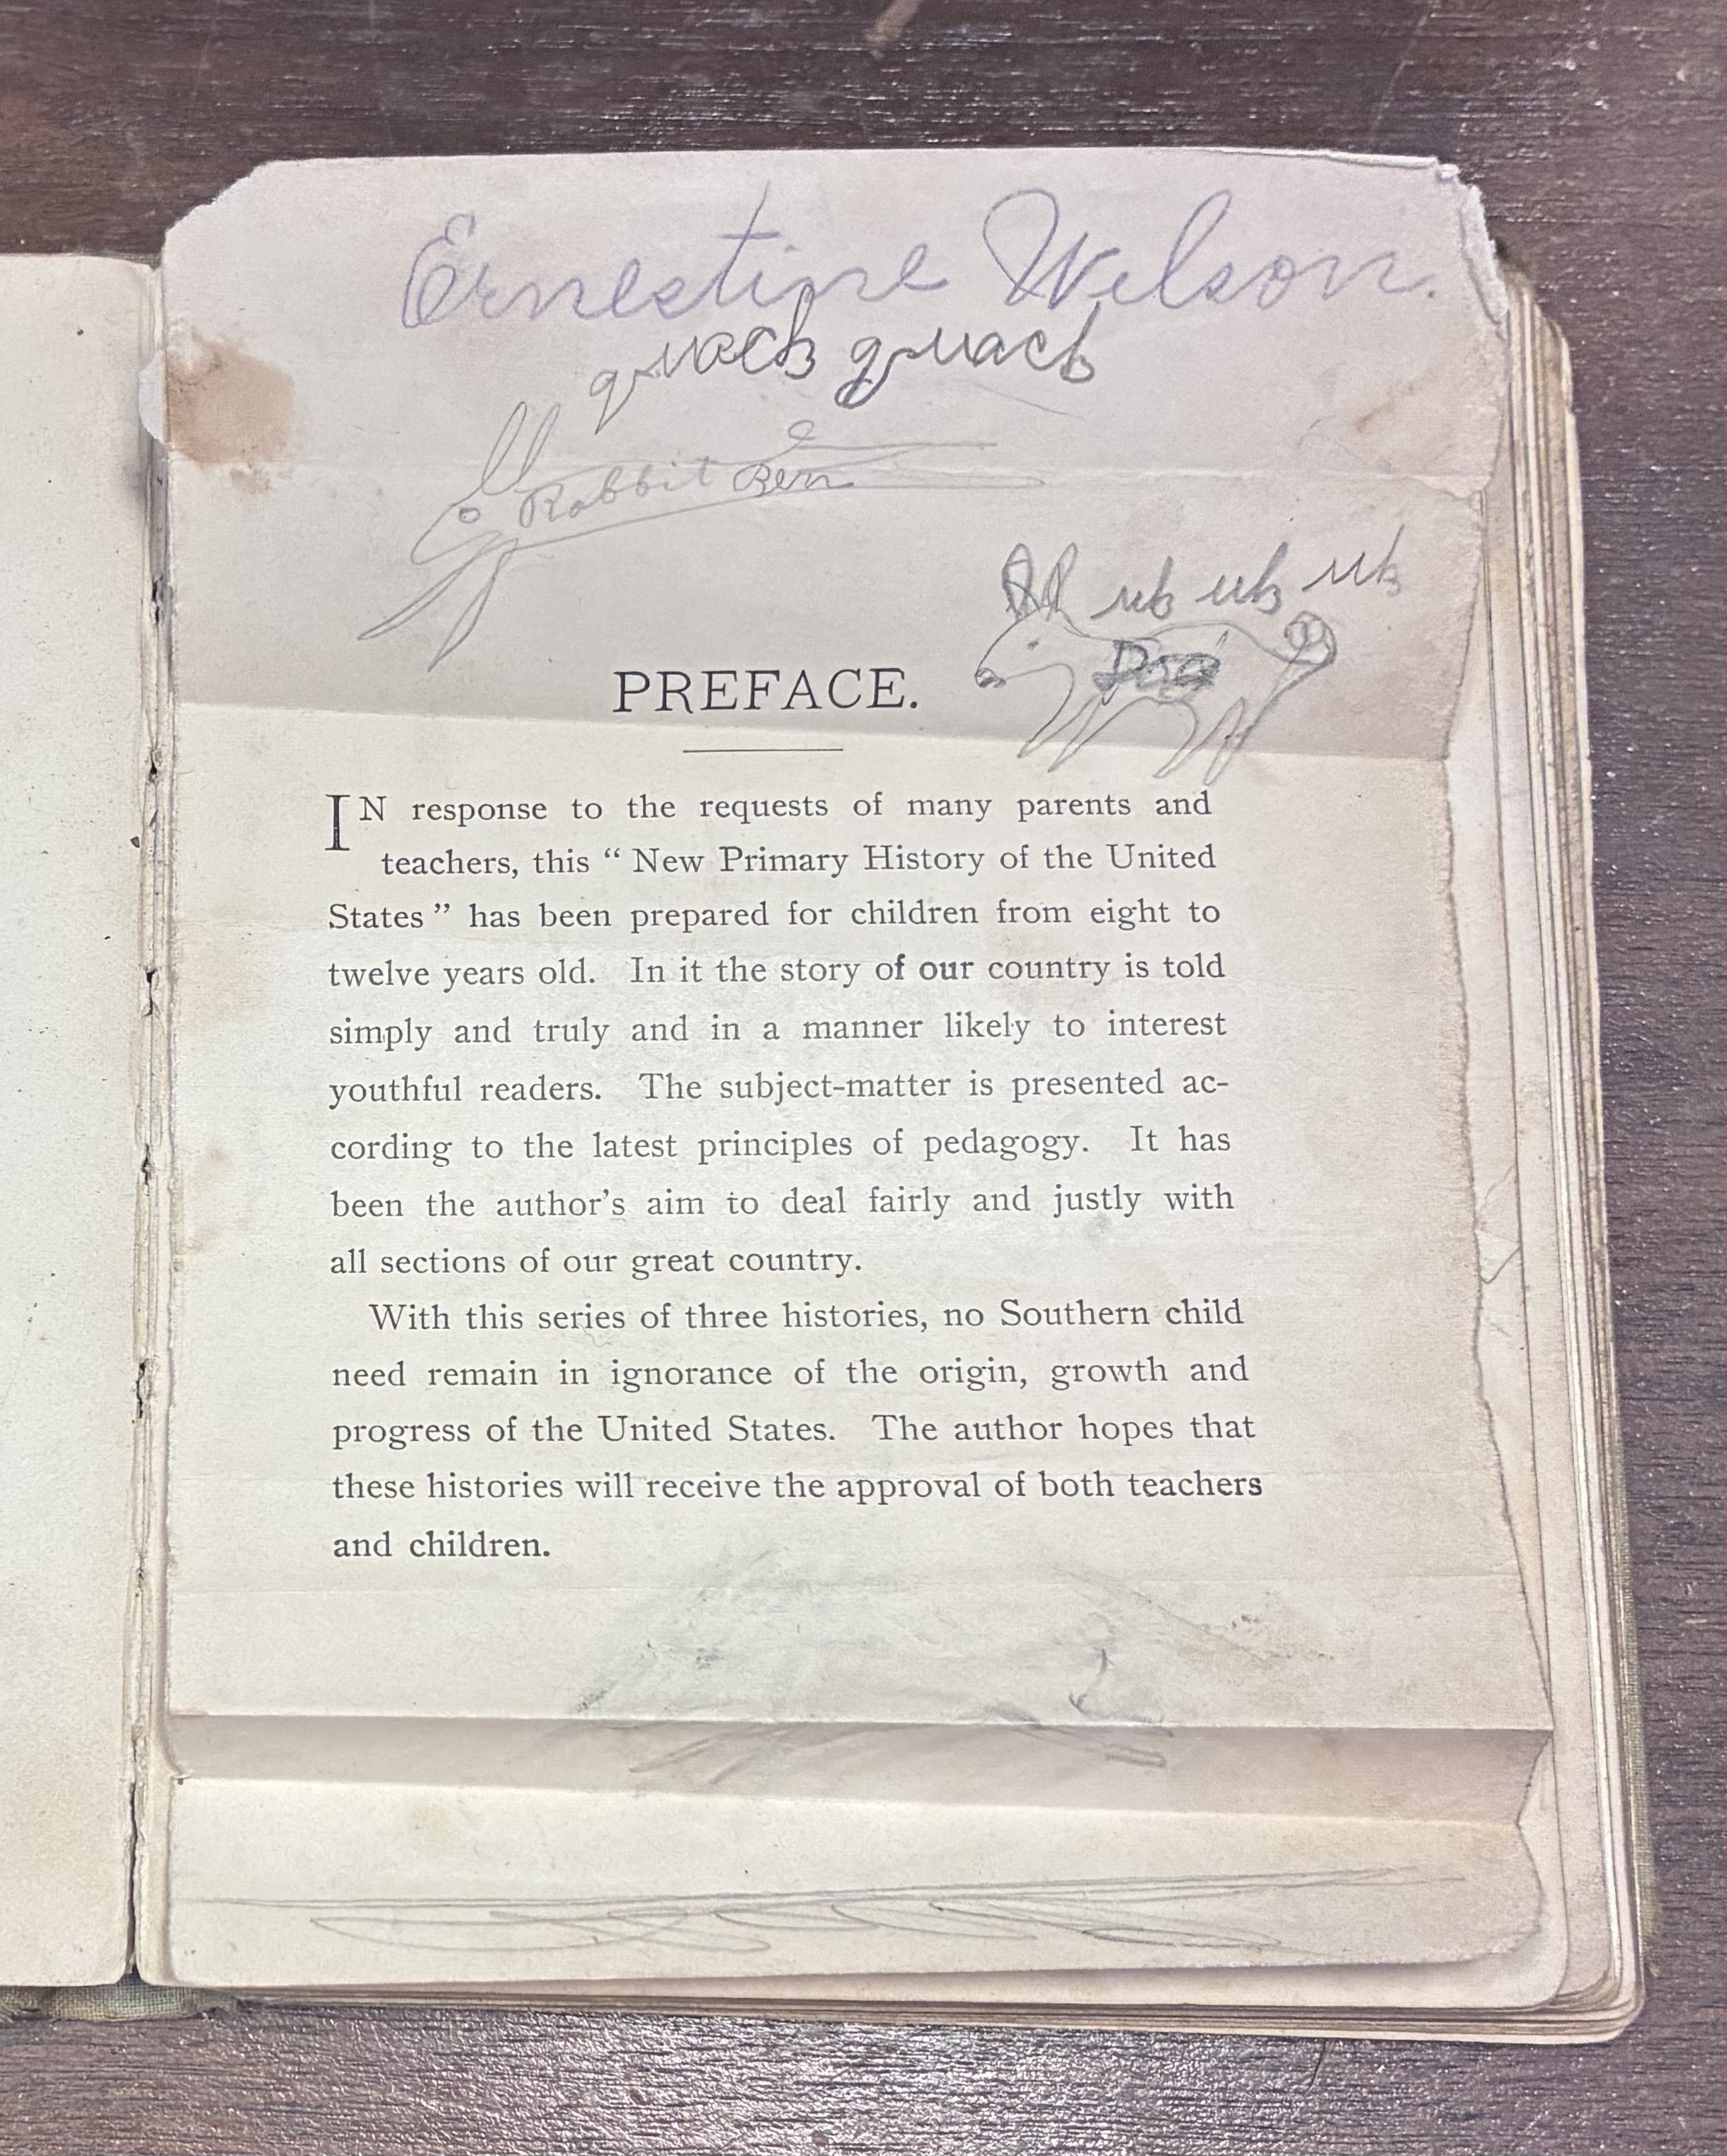 Ernestine Wilson.
quack quack
Rabbit Ben
uh uh uh
Dog
PREFACE.
IN response to the requests of many parents and
teachers, this “ New Primary History of the United
States ” has been prepared for children from eight to
twelve years old. In it the story of our country is told
simply and truly and in a manner likely to interest
youthful readers. The subject-matter is presented ac-
cording to the latest principles of pedagogy. It has
been the author's aim to deal fairly and justly with
all sections of our great country.
With this series of three histories, no Southern child
need remain in ignorance of the origin, growth and
progress of the United States. The author hopes that
these histories will receive the approval of both teachers
and children.